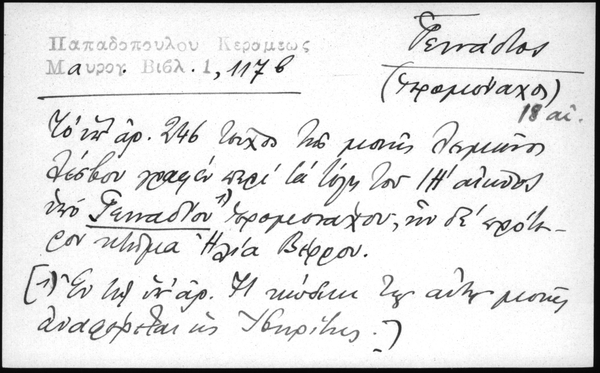 Παπαδοπουλου Κεραμεως
Μαυρογ. Βιβλ. 1, 117 β
Γεννάδιος
(ἱερομόναχος)
18 αἰ.
Τὸ ὑπ' ἀρ. 246 τεῦχος τῆς μονῆς Λειμῶνος
Λέσβου γραφὲν περὶ τὰ τέλη τοῦ ΙΗ' αἰῶνος
ὑπὸ Γενναδίου 1) ἱερομονάχου, ἦν δὲ πρότε-
ρον κτῆμα Ἠλία Βέρρου.
[1) Ἐν τῷ ὑπ' ἀρ. κώδικι τῆς αὐτῆς μονῆς
ἀναφέρεται ὡς Ἰβηρίτης.]